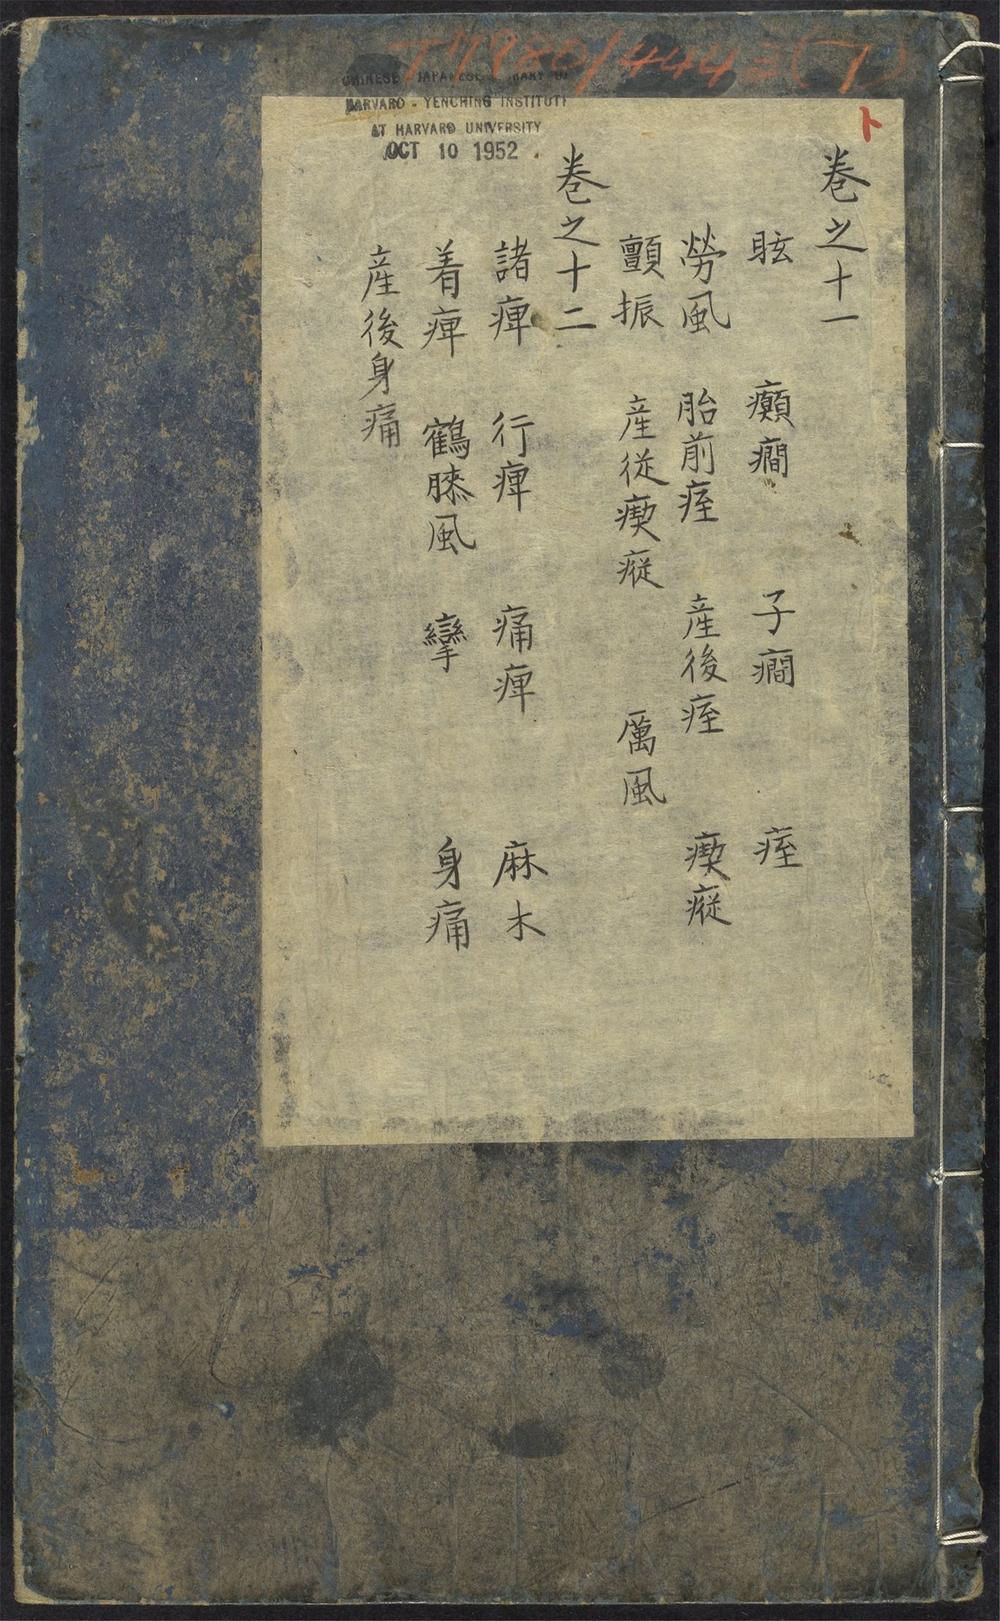 TJ7980/4443(7)
CHINESE - JAPANESE LIBRARY OF
HARVARD - YENCHING INSTITUTE
AT HARVARD UNIVERSITY
OCT 10 1952
ト
巻之十一
眩 癲癇 子癇 痓
勞風 胎前痓 産後痓 瘈瘲
顫振 産後瘈瘲 厲風
巻之十二
諸痺 行痺 痛痺 麻木
着痺 鶴膝風 攣 身痛
産後身痛